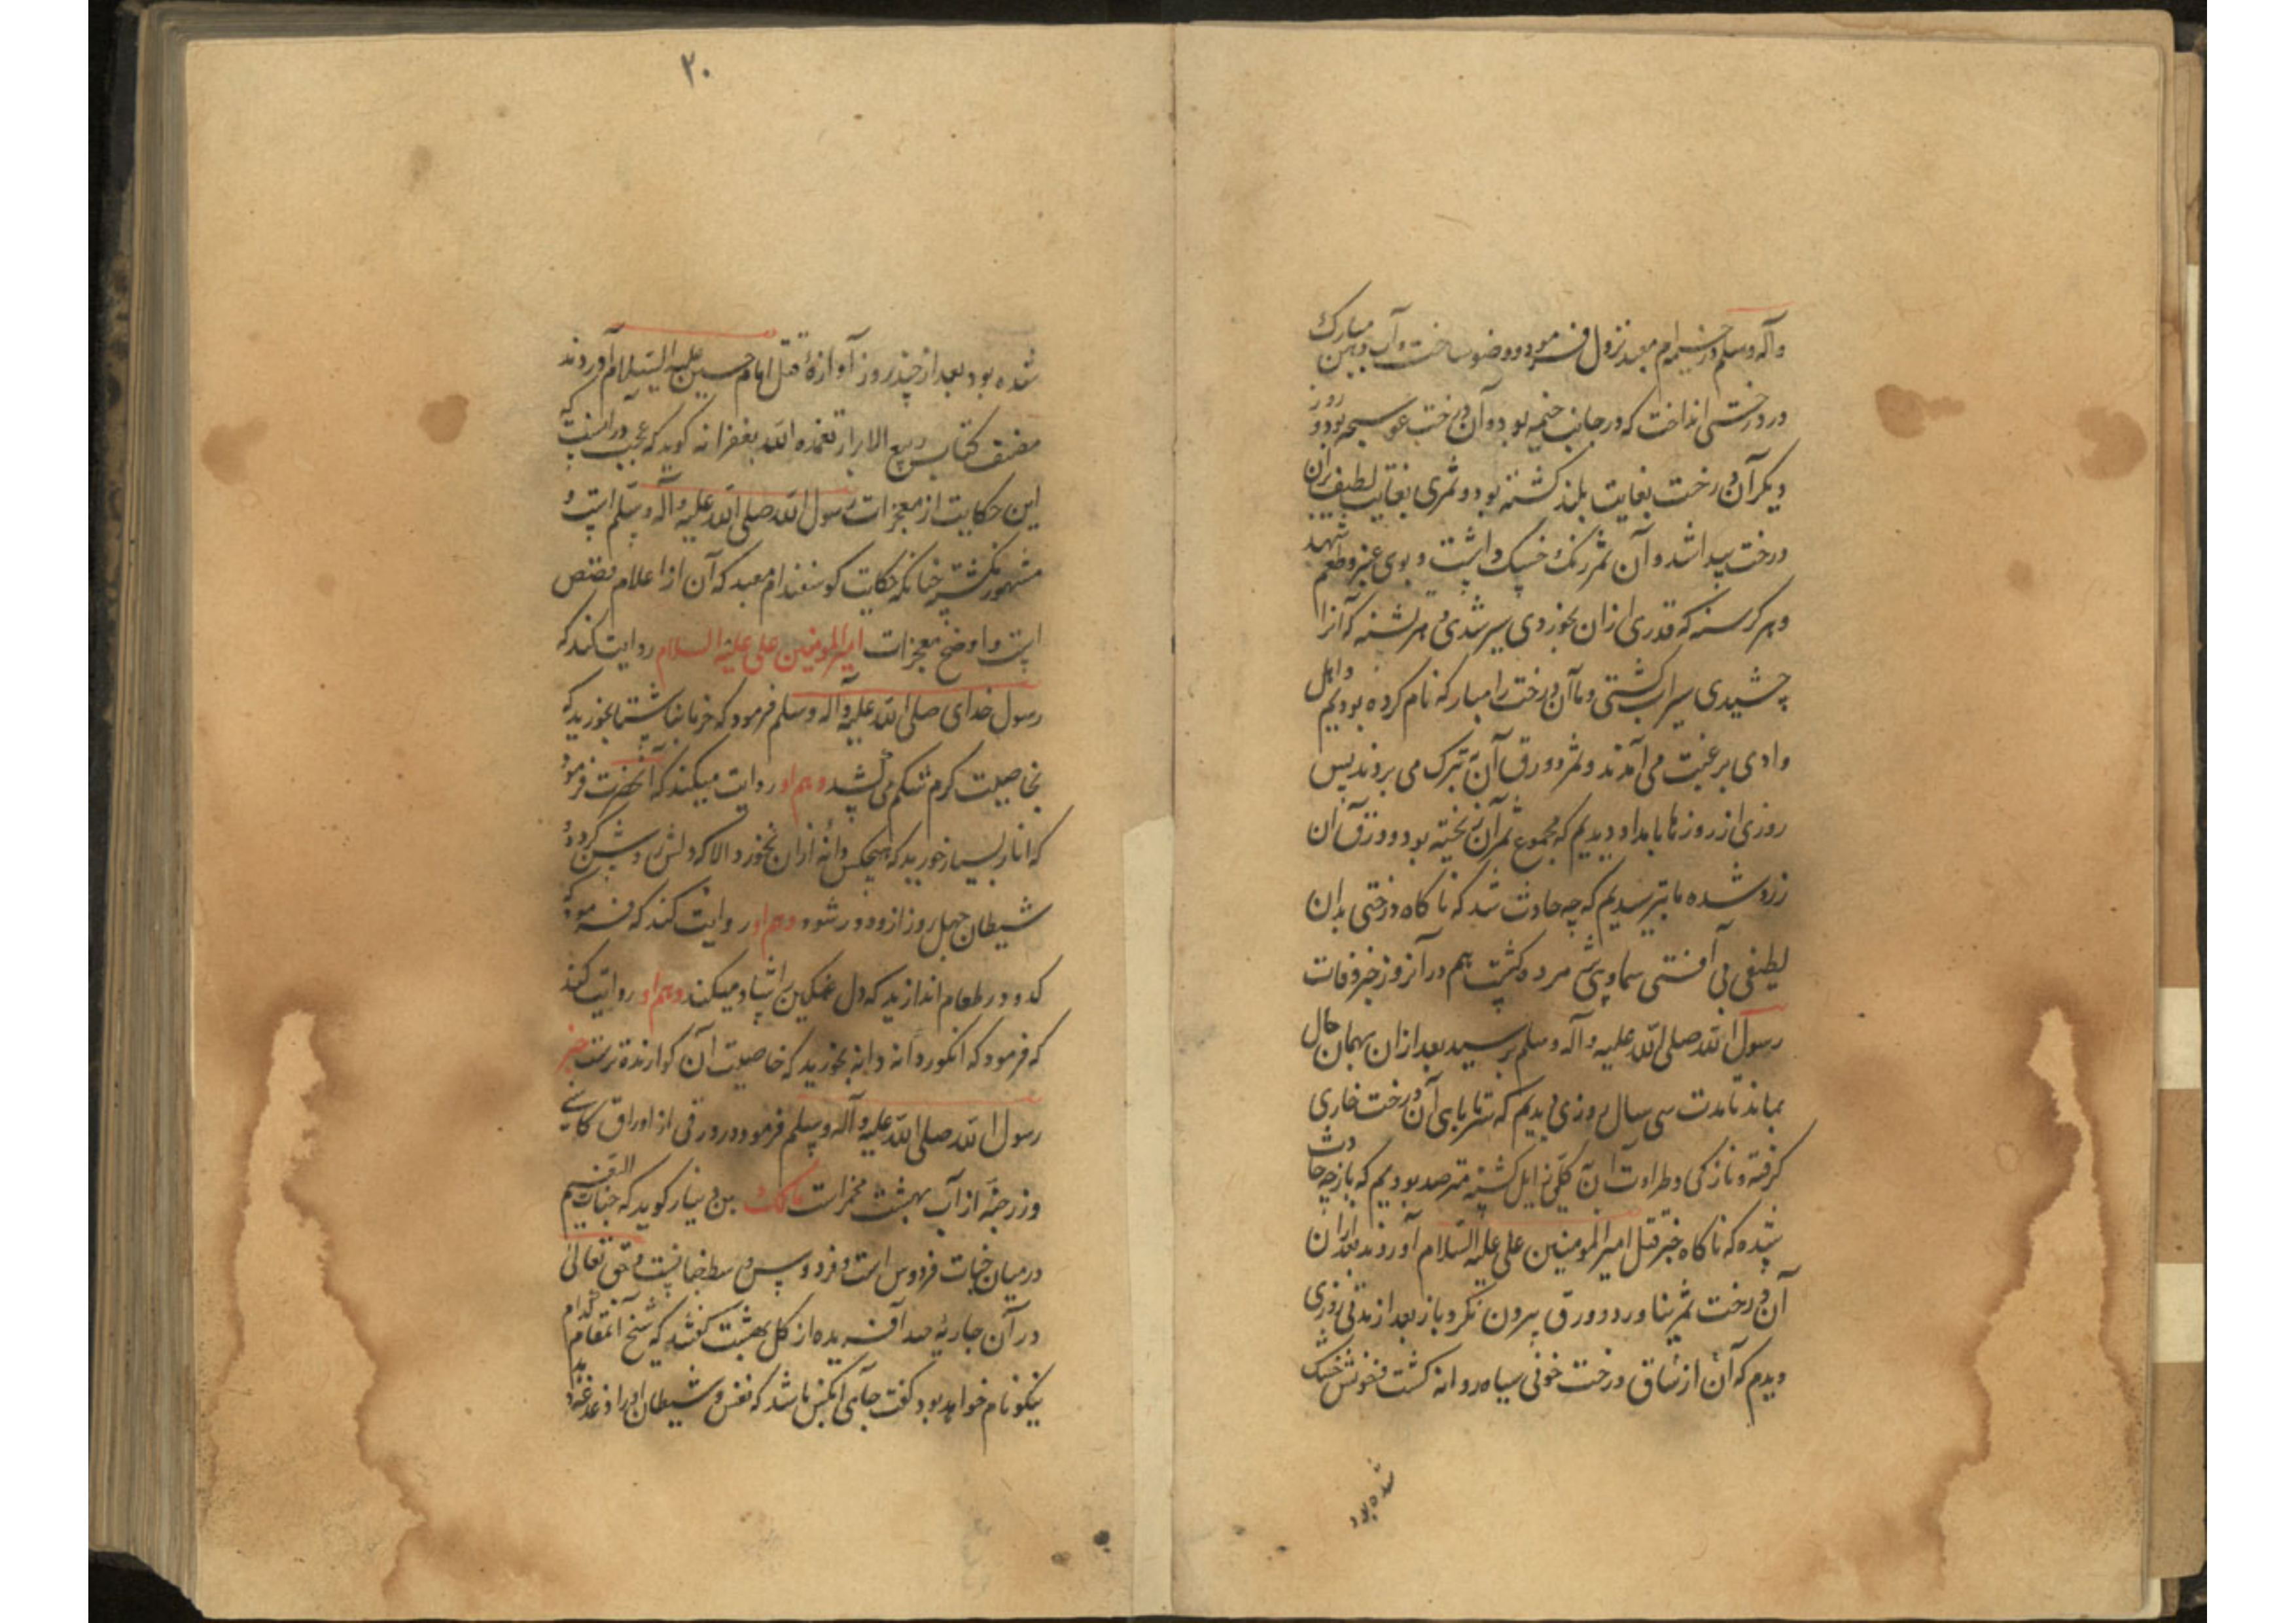 وآله وسلم در خیمه ام معبد نزول فرمود و وضو ساخت و آب دهن مبارک
در درختی انداخت که در جانب خیمه بود و آن درخت عوسجه بود و روز
دیگر آن درخت بغایت بلند گشته بود و ثمری بغایت لطیف بران
درخت پیدا شد و آن ثمر رنگ داشت و بوی عنبر و طعم شهد
و هر گرسنه که قدری ازان بخوردی سیر شدی و هر تشنه که آنرا
چشیدی سیراب گشتی و ما آن درخت را مبارکه نام کرده بودیم و اهل
وادی برغبت می آمدند و ثمر و ورق آن به تبرک می بردند پس
روزی از روزها بامداد دیدیم که مجموع ثمر آن ریخته بود و ورق آن
زرد شده ما بترسیدیم که چه حادث شد که ناکاه درختی بدان
لطیفی بی آفتی سماوی مرده گشت هم در آنروز خبر وفات
رسول الله صلی الله علیه وآله وسلم برسید بعد ازان بهمان حال
بماند تا مدت سی سال روزی دیدیم که سر تا پای آن درخت خاری
گرفته و نازکی و طراوت آن کلی زایل گشته مترصد بودیم که باز چه حادث
شده که ناکاه خبر قتل امیرالمومنین علی علیه السلام آوردند بعد ازان
آن درخت ثمر نیاورد و ورق بیرون نکرد باز بعد از مدتی روزی
دیدم که آن از ساق درخت خونی سیاه روانه گشت خشک
شده بود
۲۰
شده بود بعد از چند روز آوازهٔ قتل امام حسین علیه السلام آوردند
مصنف کتاب ربیع الابرار تغمده الله بغفرانه گوید که عجب در آنست که
این حکایت از معجزات رسول الله صلی الله علیه وآله وسلم است و
مشهور نگشته چنانکه حکایت گوسفند ام معبد که آن از اعلام قصص
است و اوضح معجزات امیرالمومنین علی علیه السلام روایت کند که
رسول خدای صلی الله علیه وآله وسلم فرمود که خرما بناشتا بخورید که
بخاصیت کرم شکم می کشد و هم او روایت میکند که آنحضرت فرمود
که انار بسیار خورید که هیچکس دانه ازان نخورد الا که دلش روشن گردد و
شیطان چهل روز ازو دور شود و هم او روایت کند که فرمود که
کدو در طعام اندازید که دل غمگین را شاد میکند و هم او روایت کند
که فرمود که انگور دانه دانه بخورید که خاصیت آن گوارنده ترست خبر
رسول الله صلی الله علیه وآله وسلم فرمود در ورقی از اوراق کاسنی
وزن حبه از آب بهشت مخمر است مالک بن دینار گوید که جنات النعیم
در میان جنات فردوس است و فردوس وسط جنانست و حق تعالی
در آن جاریه چند آفریده از گل بهشت گفتند که شیخ آنمقام کدام
نیکو نام خواهد بود گفت جای آنکس باشد که نفس و شیطان او را